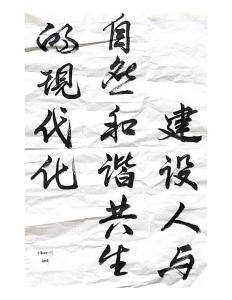 建设人与
自然和谐共生
的現代化